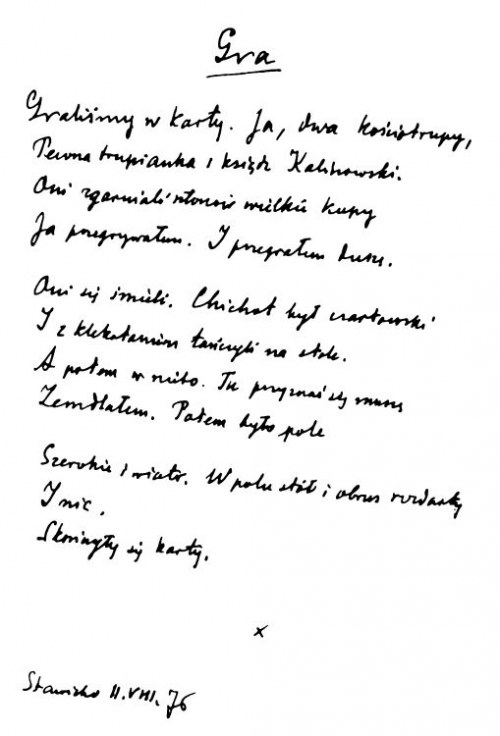 Gra
Graliśmy w karty. Ja, dwa kościotrupy,
Pewna trupianka i ksiądz Kalinowski.
Oni zgarniali słonców wielkie kupy
Ja przegrywałem. I przegrałem duszę.
Oni się śmieli. Chichot był czartowski
I z klekotaniem tańczyli na stole.
A potem w niebo. Tu przyznać się muszę
Zemdlałem. Potem było pole
Szerokie i wiatr. W polu stół i obrus rozdarty
I nic.
Skończyły się karty.
x
Stawisko 11.VIII.76